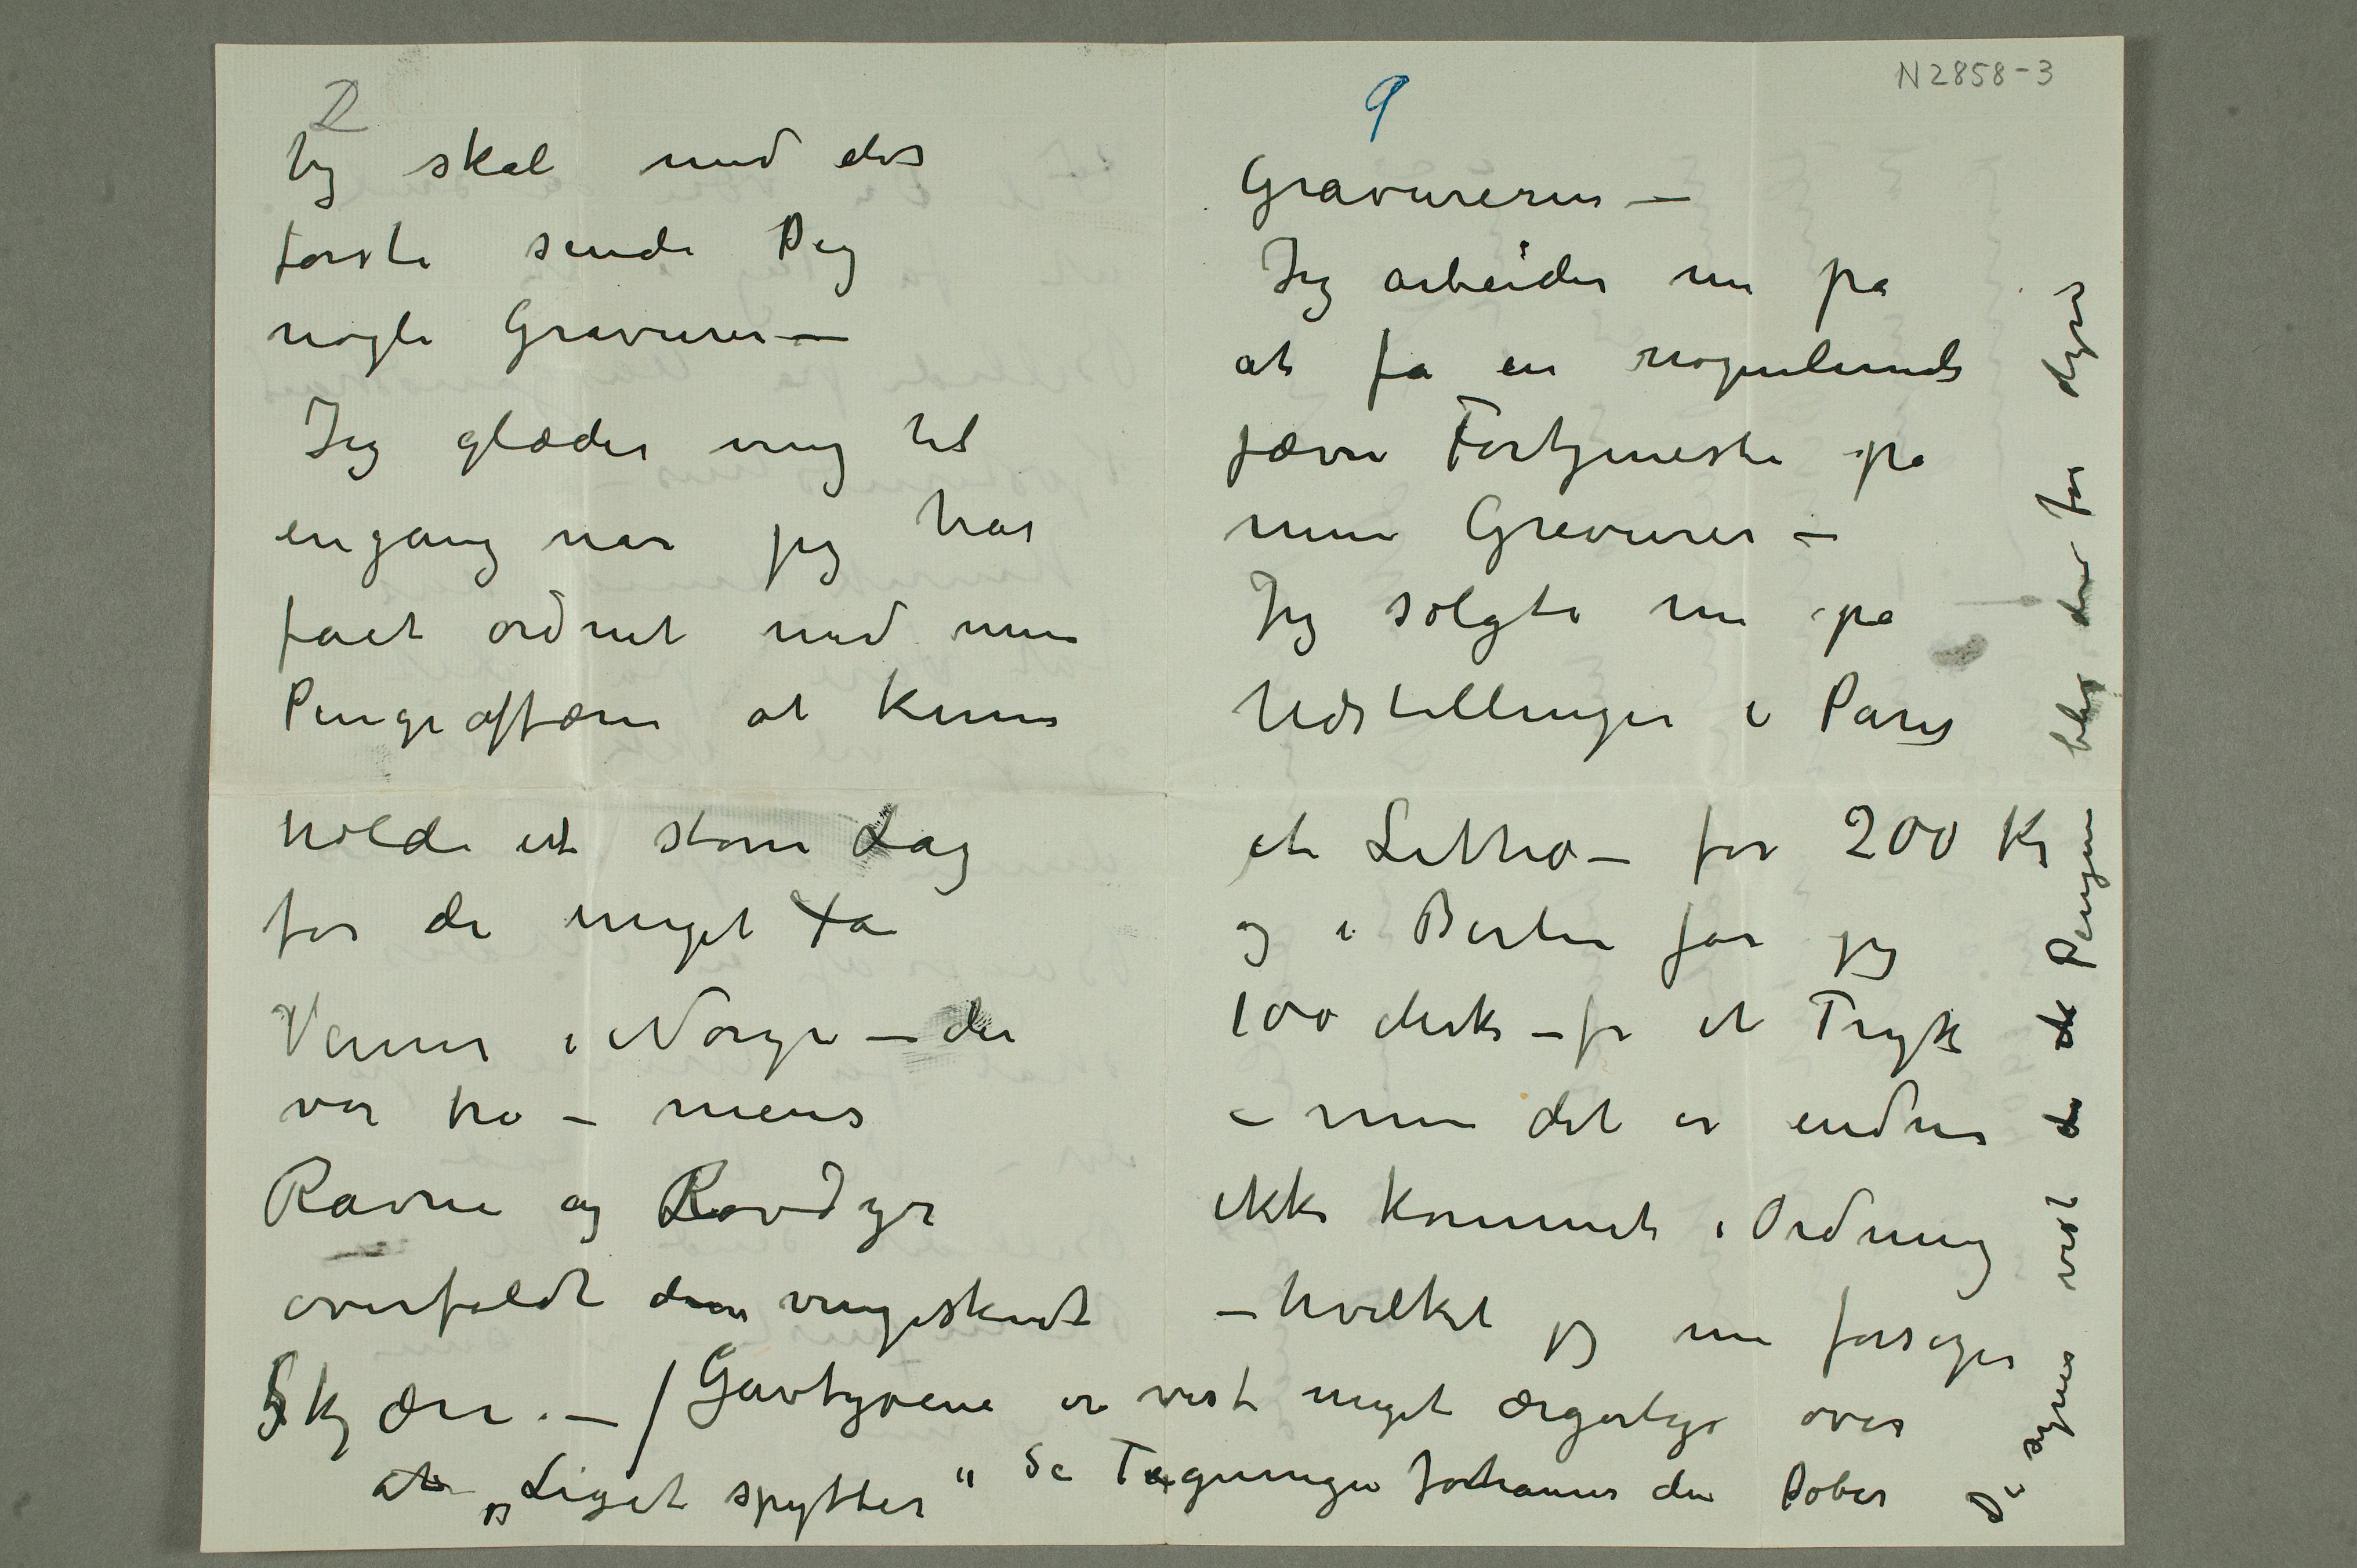 2
Jeg skal med det
første sende Dig
nogle Gravurer –
Jeg glæder mig til
engang når jeg har
fået ordnet med min
Pengeaffære at kunne
holde et stort Lag
for de meget få
Venner i Norge – der
var tro – mens
Ravne og Rovdyr
overfaldt den vingeskudt
Skjære. – / Gavtyvene er vist meget ærgerlige over
at „Liget spytter" Se Tegningen Johannes den Døber
N2858-3
9
Gravurerne –
Jeg arbeider nu på
at få en nogenlunde
jævn Fortjeneste på
mine Gravurer –
Jeg solgte nu på
Udstillingen i Paris
et Litho – for 200 Kr
og i Berlin får jeg
100 Mark – for et Tryk
– men det er endnu
ikke kommet i Ordning
– hvilket jeg nu forsøger
De synes vist de Pengene blev dem for dyre